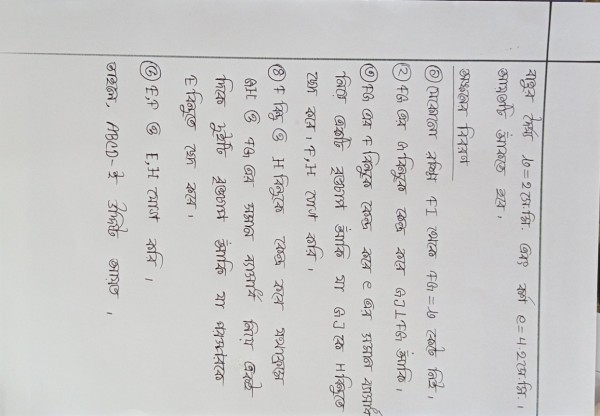 বাহুর দৈর্ঘ্য b = 2 সে.মি. এবং কর্ণ e = 4.2 সে.মি. ।
আয়তটি আঁকতে হবে ।
অঙ্কনের বিবরণ
① যেকোনো রশ্মি FI থেকে FG = b কেটে নিই ।
② FG এর G বিন্দুকে কেন্দ্র করে GJ⊥FG আঁকি ।
③ FG এর F বিন্দুকে কেন্দ্র করে e এর সমান ব্যাসার্ধ
নিয়ে একটি বৃত্তচাপ আঁকি যা GJ কে H বিন্দুতে
ছেদ করে । F, H যোগ করি ।
④ F বিন্দু ও H বিন্দুকে কেন্দ্র করে যথাক্রমে
GH ও FG এর সমান ব্যাসার্ধ নিয়ে একই
দিকে দুইটি বৃত্তচাপ আঁকি যা পরস্পরকে
E বিন্দুতে ছেদ করে ।
⑤ E,F ও E,H যোগ করি ।
তাহলে, ABCD-ই উদ্দিষ্ট আয়ত ।